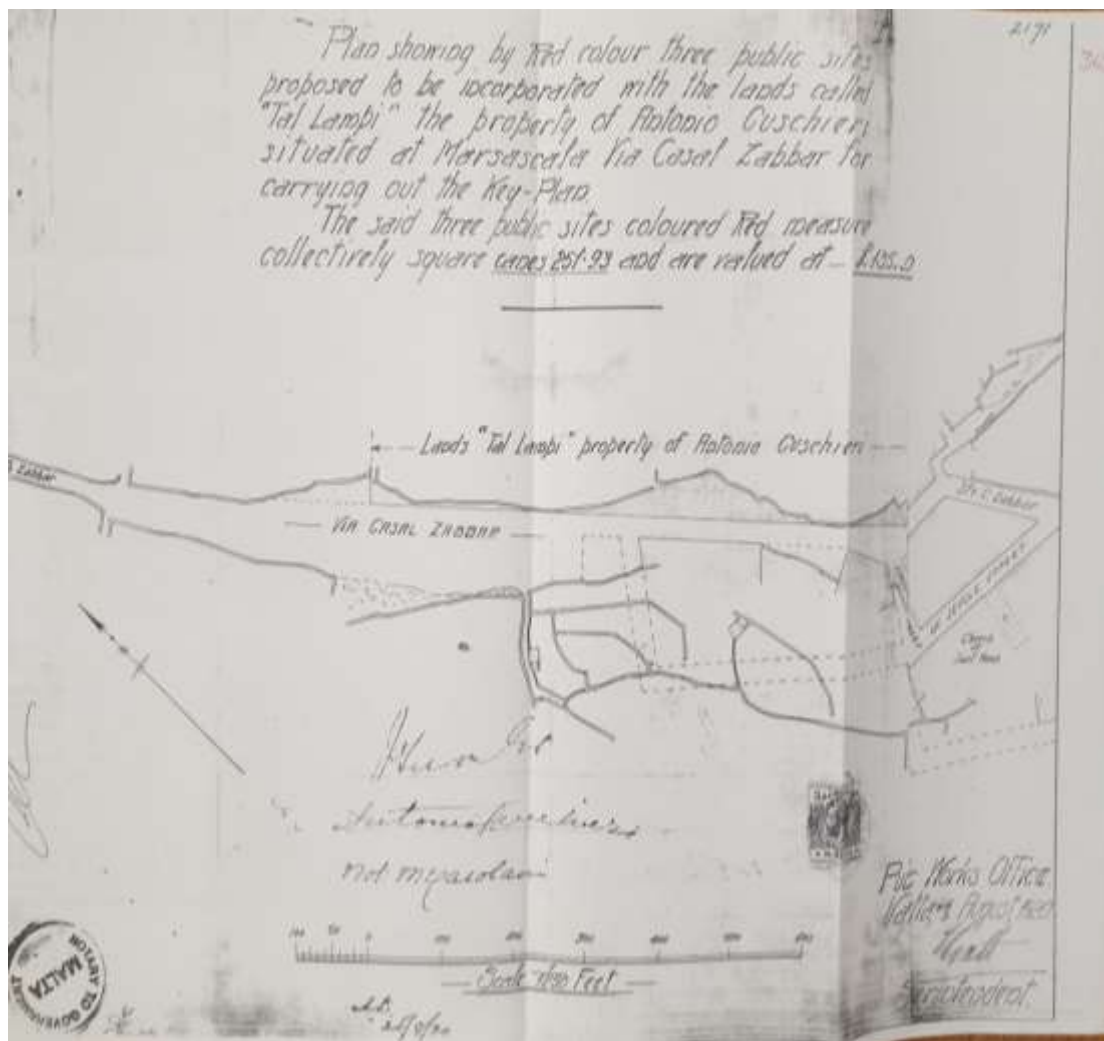 2171
Plan showing by Red colour three public sites
proposed to be incorporated with the lands called
"Tal Lampi" the property of Antonio Cuschieri
situated at Marsascala Via Casal Zabbar for
carrying out the Key-Plan.
The said three public sites coloured Red measure
collectively square canes 251·93 and are valued at £135.0
Lands "Tal Lampi" property of Antonio Cuschieri
Zabbar
VIA CASAL ZABBAR
Str C. Zabbar
Antonio Cuschieri
Not
100 50 0 100 200 300 400 500 600
Scale Feet
Pub Works Office
August
Superintendent.
NOTARY TO GOVERNMENT
MALTA